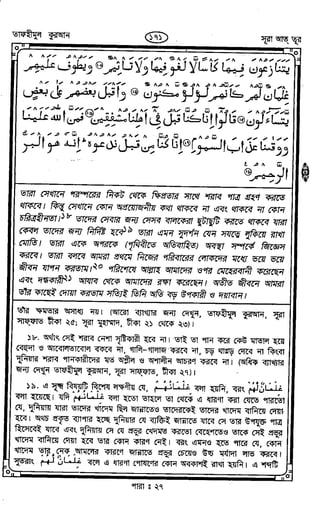 তাফহীমুল কুরআন ১৭১ সূরা আত্ তূর
يَتَنَازَعُونَ فِيهَا كَأْسًا لَّا لَغْوٌ فِيهَا وَلَا تَأْثِيمٌ ﴿٢٣﴾ وَيَطُوفُ عَلَيْهِمْ
غِلْمَانٌ لَّهُمْ كَأَنَّهُمْ لُؤْلُؤٌ مَّكْنُونٌ ﴿٢٤﴾ وَأَقْبَلَ بَعْضُهُمْ عَلَىٰ بَعْضٍ
يَتَسَاءَلُونَ ﴿٢٥﴾ قَالُوا إِنَّا كُنَّا قَبْلُ فِي أَهْلِنَا مُشْفِقِينَ ﴿٢٦﴾ فَمَنَّ اللَّهُ عَلَيْنَا
وَوَقَانَا عَذَابَ السَّمُومِ ﴿٢٧﴾ إِنَّا كُنَّا مِن قَبْلُ نَدْعُوهُ إِنَّهُ هُوَ الْبَرُّ
الرَّحِيمُ ﴿٢٨﴾
তারা সেখানে পরস্পরের নিকট থেকে ক্ষিপ্রতার সাথে শরাব পাত্র গ্রহণ করতে
থাকবে। কিন্তু সেখানে কোন অপ্রয়োজনীয় কথা থাকবে না এবং থাকবে না কোন
চরিত্রহীনতা।১৮ তাদের সেবার জন্য সেসব বালকেরা ছুটাছুটি করতে থাকবে যারা
কেবল তাদের জন্য নির্দিষ্ট হবে১৯ তারা এমন সুদর্শন যেন সযত্নে লুকিয়ে রাখা
মোতি। তারা একে অপরকে (পৃথিবীতে অতিবাহিত) অবস্থা সম্পর্কে জিজ্ঞেস
করবে। তারা বলবে আমরা প্রথমে নিজের পরিবারের লোকদের মধ্যে ভয়ে ভয়ে
জীবন যাপন করতাম।২০ পরিশেষে আল্লাহ আমাদের ওপর মেহেরবানী করেছেন
এবং দগ্ধকারী২১ আযাব থেকে আমাদের রক্ষা করেছেন। অতীত জীবনে আমরা
তাঁর কাছেই দোয়া করতাম সত্যিই তিনি অতি বড় উপকারী ও দয়াবান।
তাঁর ক্ষমতার অসাধ্য নয়। (আরো ব্যাখ্যার জন্য দেখুন, তাফহীমুল কুরআন, সূরা
সাফ্ফাত টীকা ২৫; সূরা মুহাম্মাদ, টীকা ২১ থেকে ২৩)।
১৮. অর্থাৎ সেই শরাব নেশা সৃষ্টিকারী হবে না। তাই তা পান করে কেউ মাতাল হয়ে
বেহুদা ও আবোলতাবোল বকবে না, গালি-গালাজ করবে না, চড় থাপ্পড় দেবে না কিংবা
দুনিয়ার শরাব পানকারীদের মত অশ্লীল ও অশালীন আচরণ করবে না। (অধিক ব্যাখ্যার
জন্য দেখুন তাফহীমুল কুরআন, সূরা সাফ্ফাত, টীকা ২৭)।
১৯. এ সূক্ষ্ম বিষয়টি বিশেষ লক্ষণীয় যে, غِلْمَانُهُمْ বলা হয়নি, বরং غِلْمَانٌ لَّهُمْ
বলা হয়েছে। যদি غِلْمَانُهُمْ বলা হতো তাহলে তা থেকে এ ধারণা করা যেতে পারতো
যে, দুনিয়ায় যারা তাদের খাদেম ছিল জান্নাতেও তাদেরকেই তাদের খাদেম বানিয়ে দেয়া
হবে। অথচ প্রকৃত ব্যাপার হচ্ছে দুনিয়ার যে ব্যক্তিই জান্নাতে যাবে সে তার উপযুক্ত পাত্র
হিসেবেই যাবে এবং দুনিয়ায় সে যে প্রভুর খেদমত করতো বেহেশতেও তাকে সেই প্রভুর
খাদেম বানিয়ে দেয়া হবে তার কোন কারণ নেই। বরং এমনও হতে পারে যে, কোন
খাদেম তার নেক আমলের কারণে জান্নাতে প্রভুর চেয়েও উচ্চ মর্যাদা লাভ করবে।
সুতরাং غِلْمَانٌ لَّهُمْ বলে এ ধারণা পোষণের কোন অবকাশই রাখা হয়নি। এ শব্দটি
পারা : ২৭